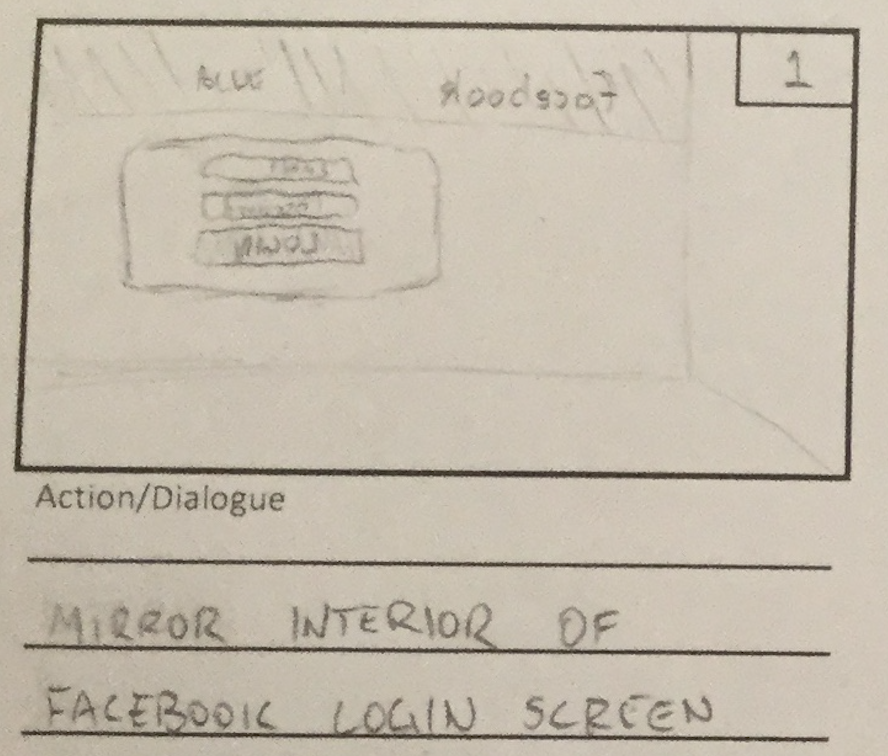 1
BLUE
Facebook
LOGIN
Action/Dialogue
MIRROR INTERIOR OF
FACEBOOK LOGIN SCREEN